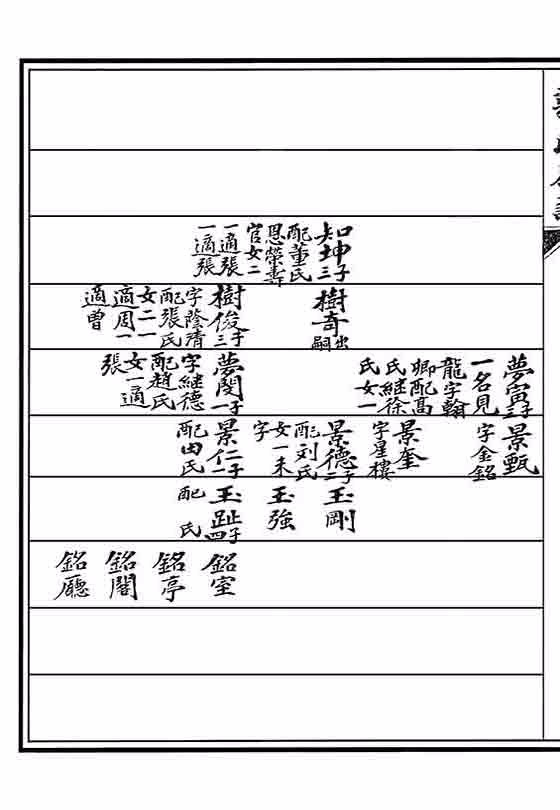 知坤三子
配董氏
恩榮壽
官女二
一適張
一適張
樹奇出嗣
樹俊三子
字蔭清
配張氏
女二一
適周一
適曾
夢寅三子
一名見
龍字翰
卿配高
氏繼徐
氏女一
夢閔一子
字繼德
配趙氏
女一適
張
景甄
字金銘
景奎
字星樓
景德二子
配刘氏
女一未
字
景仁一子
配田氏
玉剛
玉強
玉趾四子
配 氏
銘室
銘亭
銘閣
銘廳